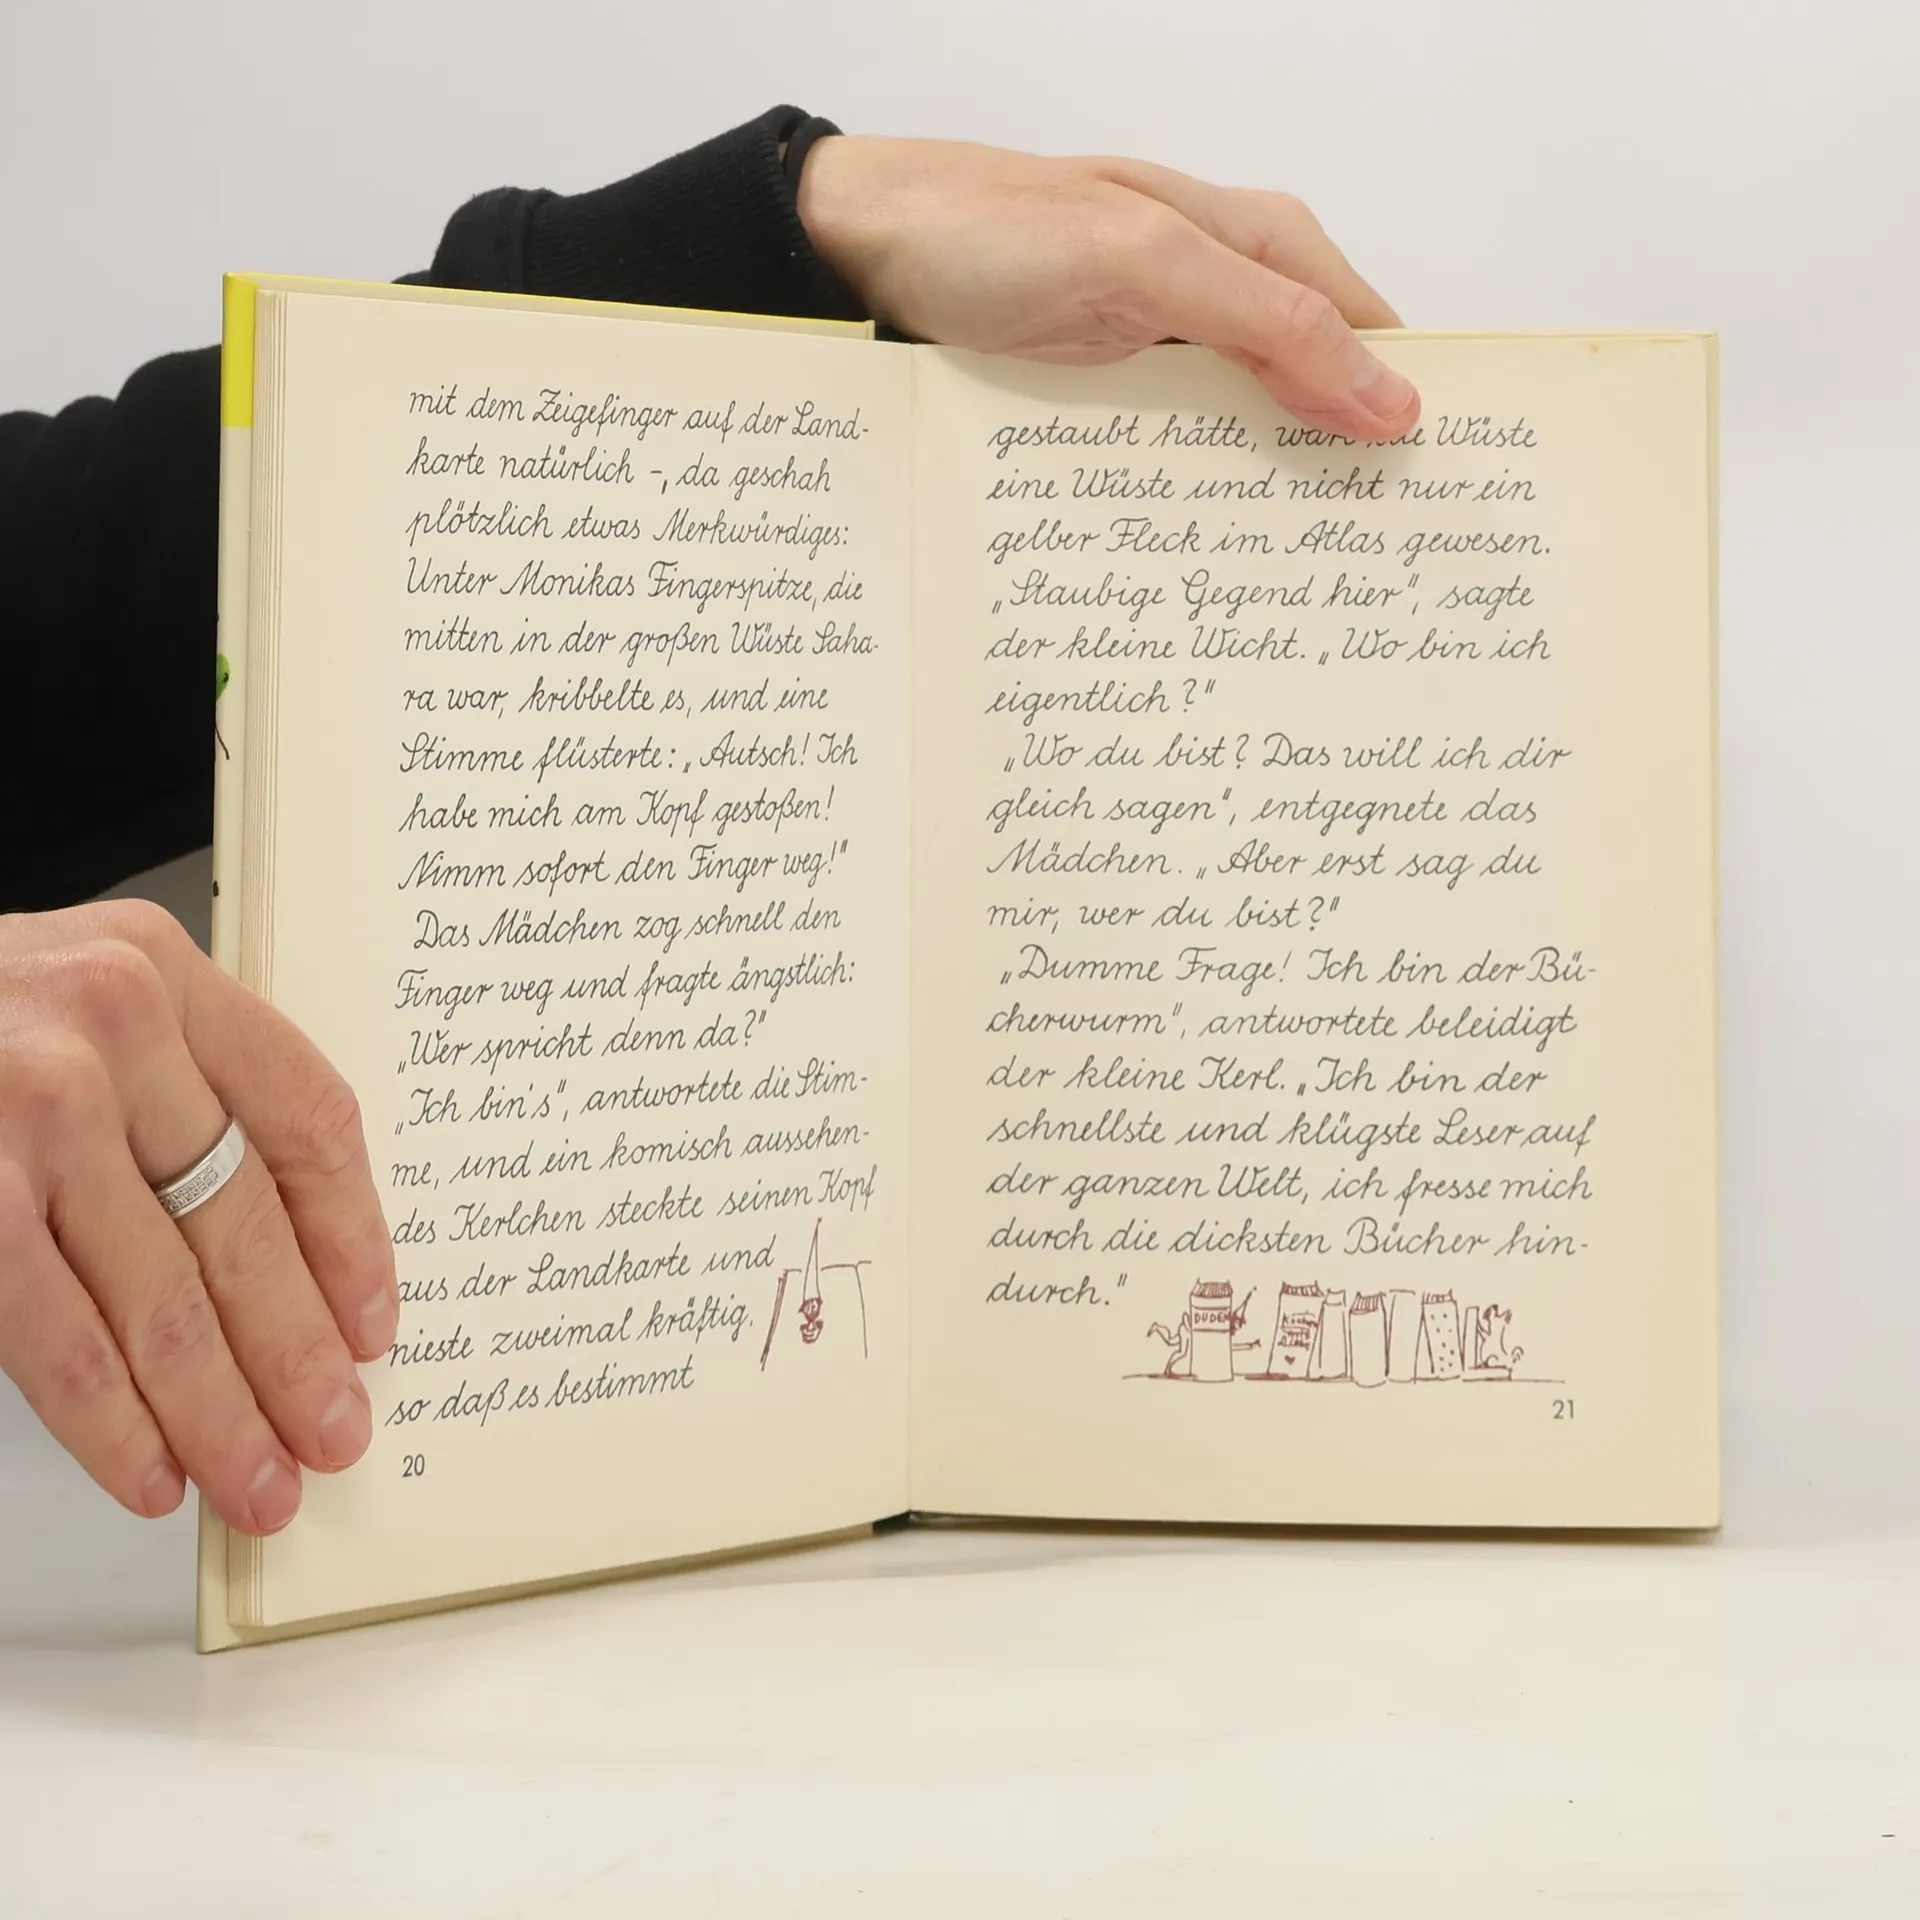 mit dem Zeigefinger auf der Land-
karte natürlich -, da geschah
plötzlich etwas Merkwürdiges:
Unter Monikas Fingerspitze, die
mitten in der großen Wüste Saha-
ra war, kribbelte es, und eine
Stimme flüsterte: „Autsch! Ich
habe mich am Kopf gestoßen!
Nimm sofort den Finger weg!"
Das Mädchen zog schnell den
Finger weg und fragte ängstlich:
„Wer spricht denn da?"
„Ich bin's", antwortete die Stim-
me, und ein komisch aussehen-
des Kerlchen steckte seinen Kopf
aus der Landkarte und
nieste zweimal kräftig,
so daß es bestimmt
20
gestaubt hätte, Wüste
eine Wüste und nicht nur ein
gelber Fleck im Atlas gewesen.
„Staubige Gegend hier", sagte
der kleine Wicht. „Wo bin ich
eigentlich?"
„Wo du bist? Das will ich dir
gleich sagen", entgegnete das
Mädchen. „Aber erst sag du
mir, wer du bist?"
„Dumme Frage! Ich bin der Bü-
cherwurm", antwortete beleidigt
der kleine Kerl. „Ich bin der
schnellste und klügste Leser auf
der ganzen Welt, ich fresse mich
durch die dicksten Bücher hin-
durch."
DUDEN
21